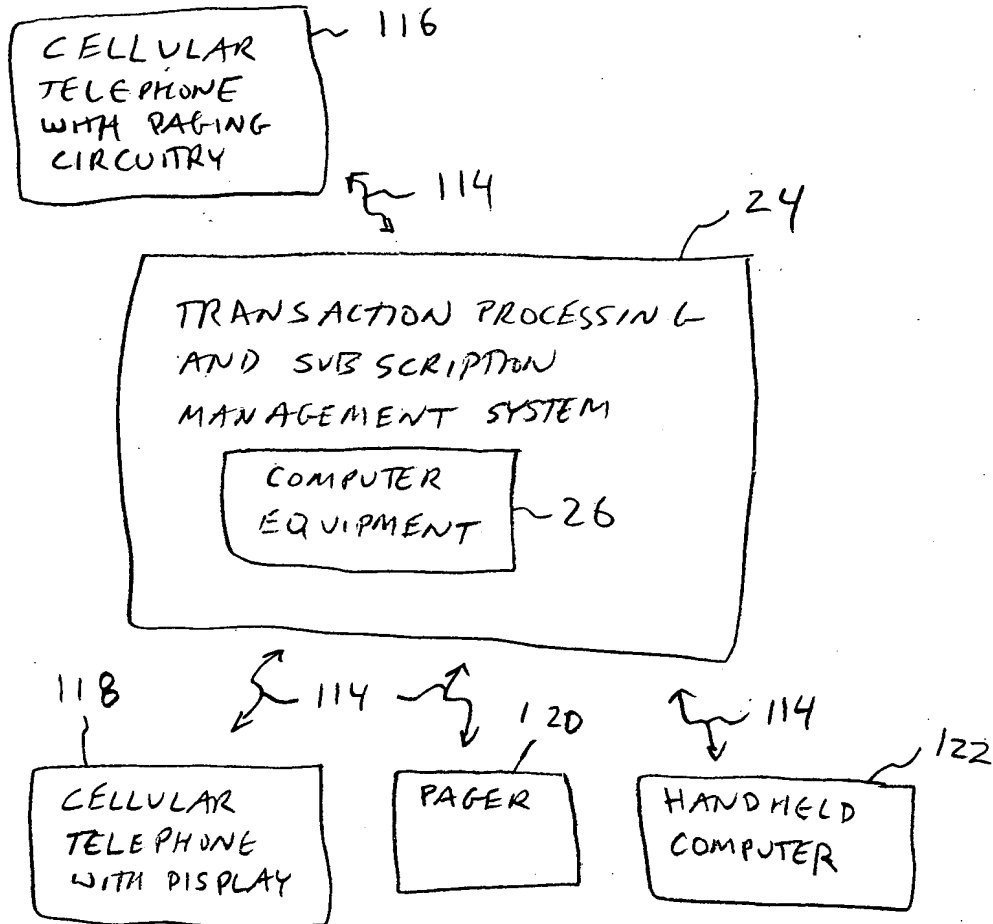 CELLULAR
TELEPHONE
WITH PAGING
CIRCUITRY
116
114
24
TRANSACTION PROCESSING
AND SUBSCRIPTION
MANAGEMENT SYSTEM
COMPUTER
EQUIPMENT
26
118
114
120
114
122
CELLULAR
TELEPHONE
WITH DISPLAY
PAGER
HANDHELD
COMPUTER